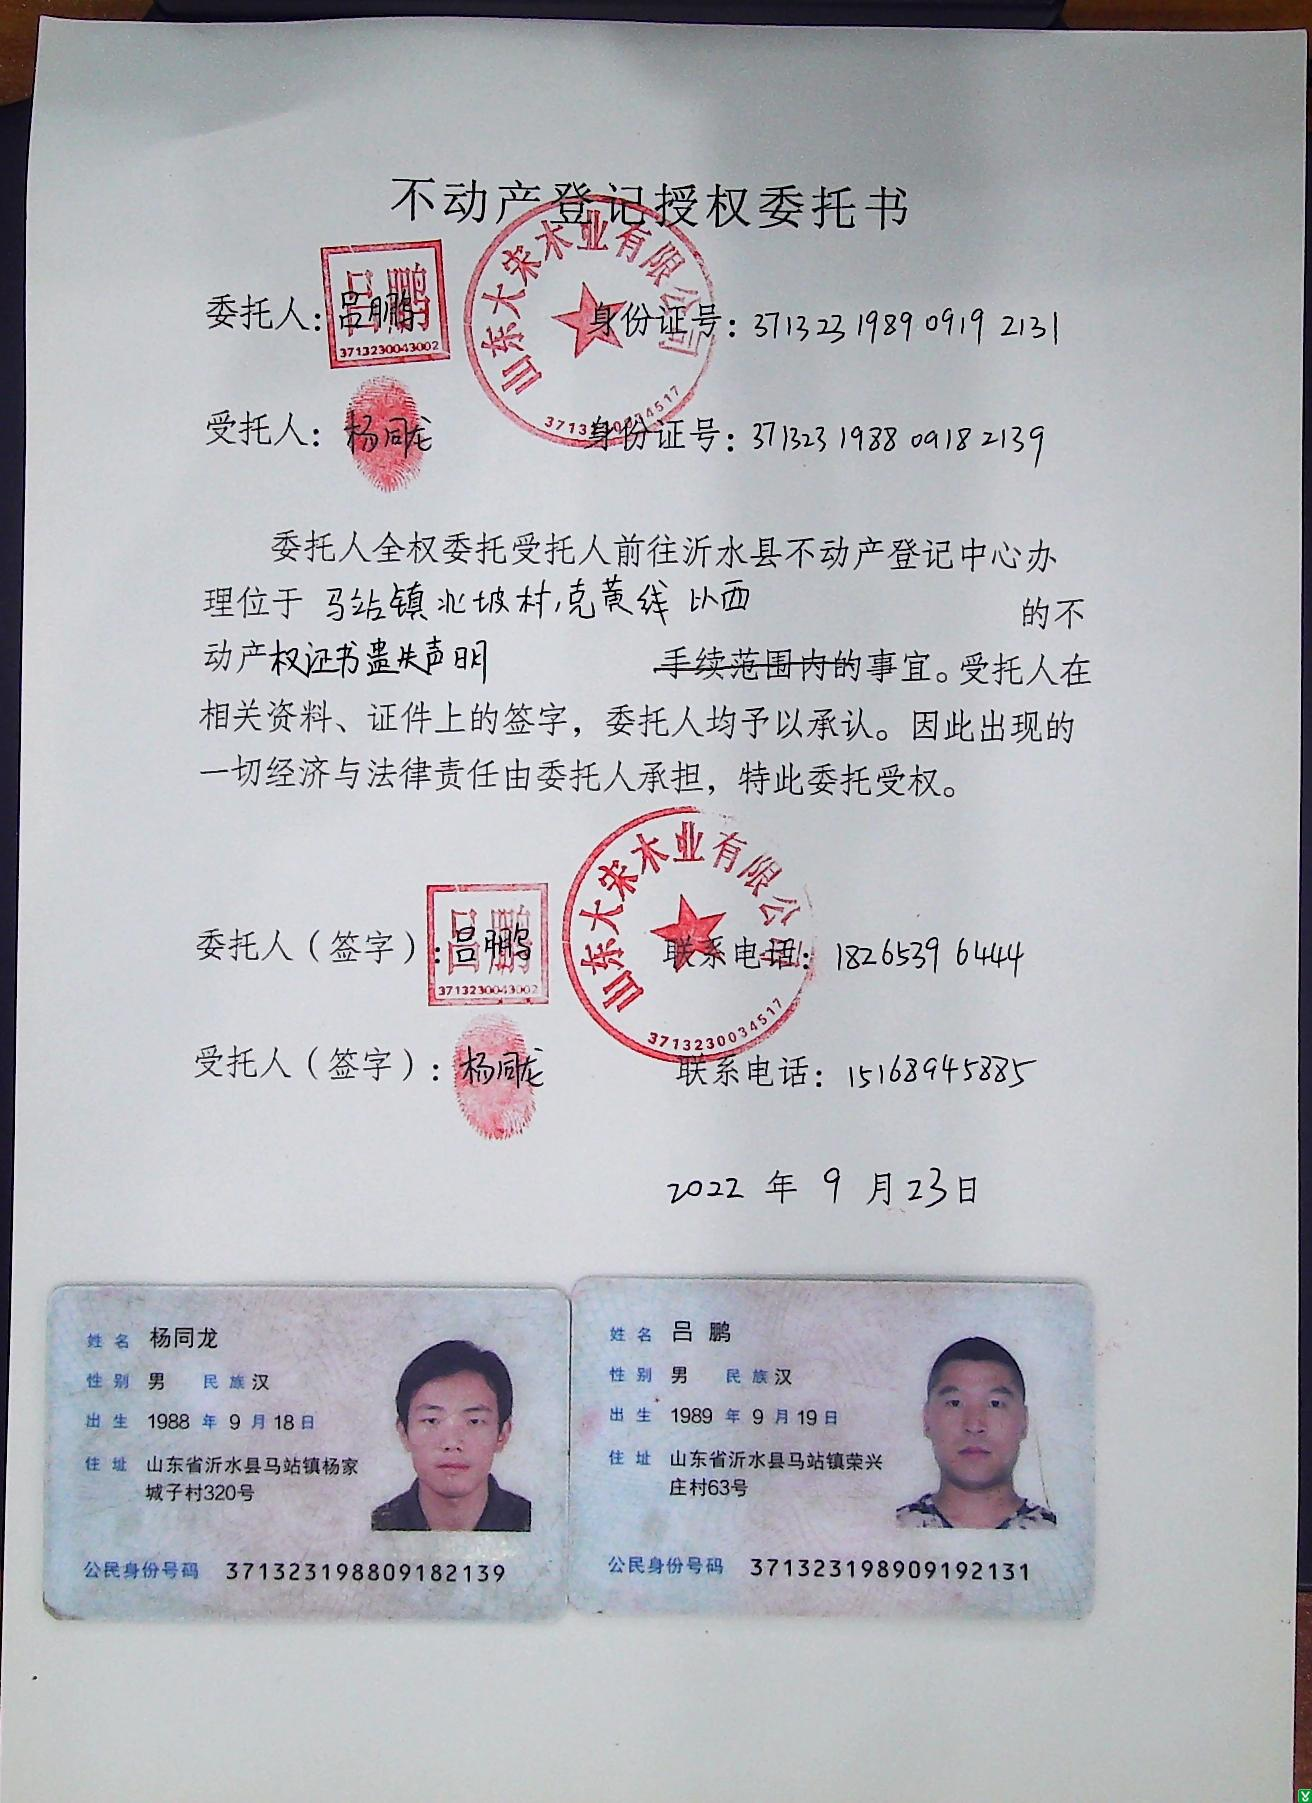 不动产登记授权委托书
委托人：吕鹏 身份证号：371323198909192131
吕鹏
3713230043002
山东大宋木业有限公司
受托人：杨同龙 身份证号：371323198809182139
委托人全权委托受托人前往沂水县不动产登记中心办
理位于 马站镇北坡村,兖黄线以西 的不
动产权证书遗失声明 手续范围内的事宜。受托人在
相关资料、证件上的签字，委托人均予以承认。因此出现的
一切经济与法律责任由委托人承担，特此委托受权。
山东大宋木业有限公司
3713230034517
委托人（签字）：吕鹏 联系电话：18265396444
吕鹏
3713230043002
受托人（签字）：杨同龙 联系电话：15168945885
2022 年 9 月 23 日
姓名 杨同龙
性别 男 民族 汉
出生 1988 年 9 月 18 日
住址 山东省沂水县马站镇杨家
城子村320号
公民身份号码 371323198809182139
姓名 吕鹏
性别 男 民族 汉
出生 1989 年 9 月 19 日
住址 山东省沂水县马站镇荣兴
庄村63号
公民身份号码 371323198909192131